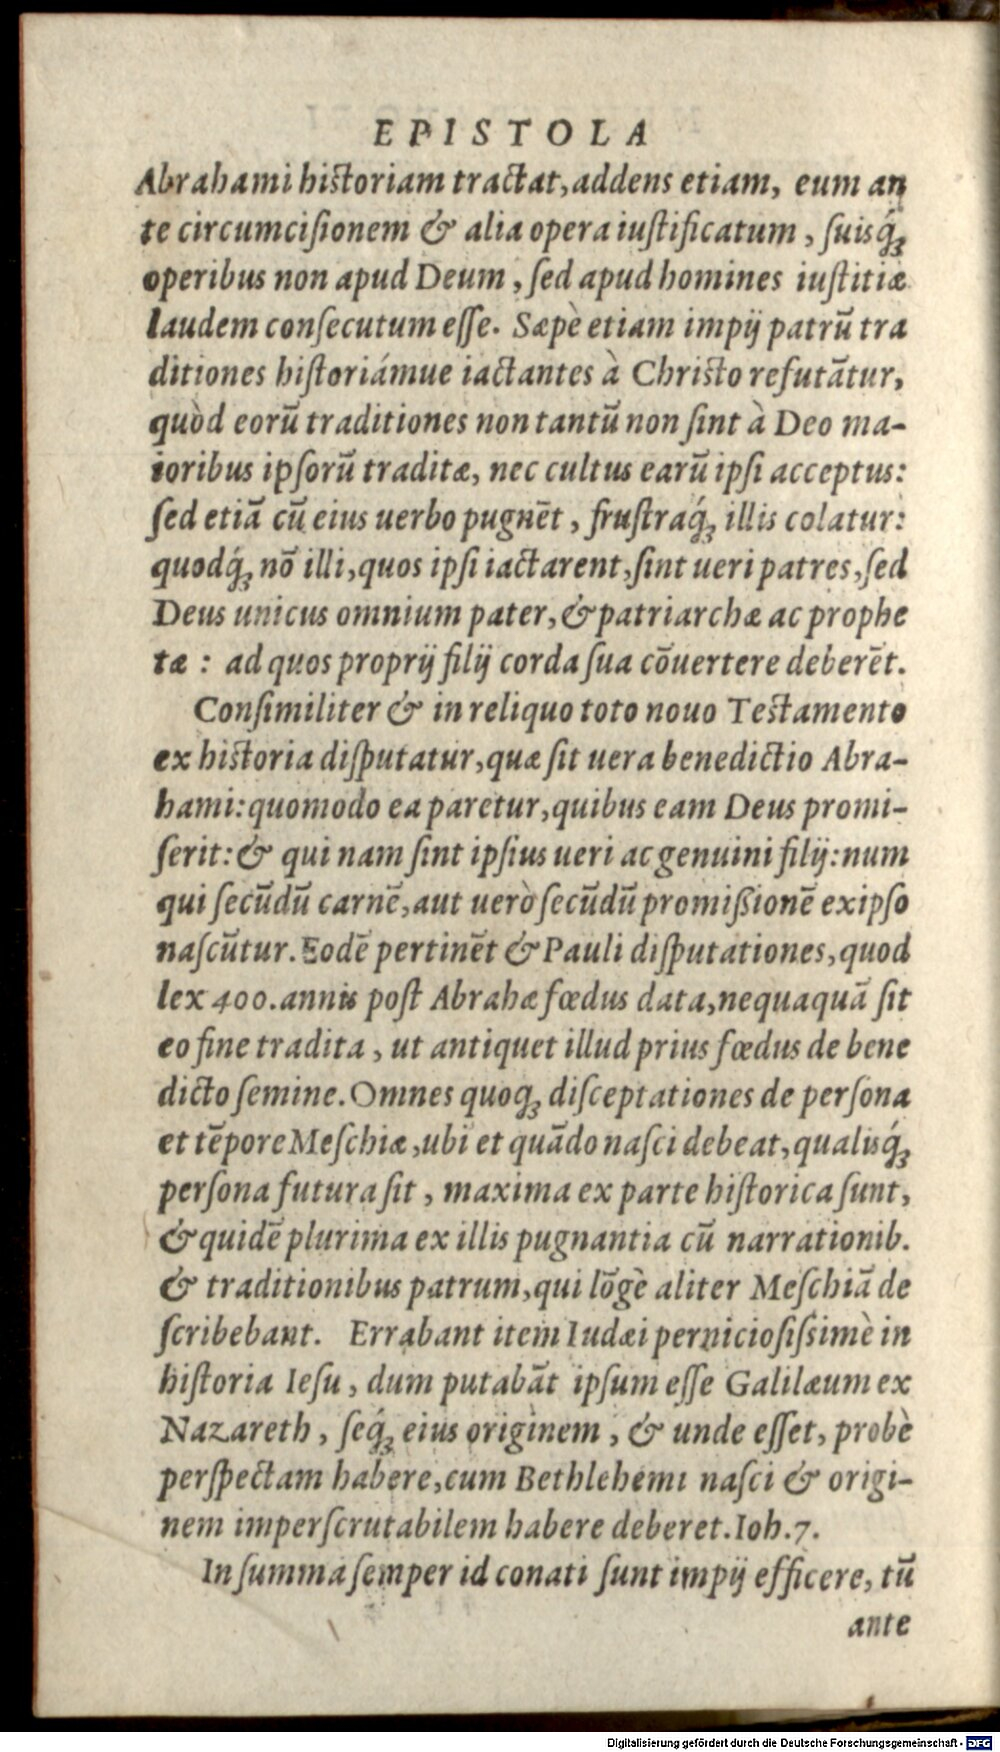 EPISTOLA
Abrahami historiam tractat, addens etiam, eum an
te circumcisionem & alia opera iustificatum, suisq́;
operibus non apud Deum, sed apud homines iustitiæ
laudem consecutum esse. Sæpè etiam impij patrũ tra
ditiones historiámue iactantes à Christo refutãtur,
quòd eorũ traditiones non tantũ non sint à Deo ma-
ioribus ipsorũ traditæ, nec cultus earũ ipsi acceptus:
sed etiã cũ eius uerbo pugnẽt, frustraq́; illis colatur:
quodq́; nõ illi, quos ipsi iactarent, sint ueri patres, sed
Deus unicus omnium pater, & patriarchæ ac prophe
tæ: ad quos proprij filij corda sua cõuertere deberẽt.
Consimiliter & in reliquo toto nouo Testamento
ex historia disputatur, quæ sit uera benedictio Abra-
hami: quomodo ea paretur, quibus eam Deus promi-
serit: & qui nam sint ipsius ueri ac genuini filij: num
qui secũdũ carnẽ, aut uerò secũdũ promißionẽ ex ipso
nascũtur. Eodẽ pertinẽt & Pauli disputationes, quod
lex 400. annis post Abrahæ fœdus data, nequaquã sit
eo fine tradita, ut antiquet illud prius fœdus de bene
dicto semine. Omnes quoq; disceptationes de persona
et tẽpore Meschiæ, ubi et quãdo nasci debeat, qualisq́;
persona futura sit, maxima ex parte historica sunt,
& quidẽ plurima ex illis pugnantia cũ narrationib.
& traditionibus patrum, qui lõgè aliter Meschiã de
scribebant. Errabant item Iudæi perniciosissimè in
historia Iesu, dum putabãt ipsum esse Galilæum ex
Nazareth, seq́; eius originem, & unde esset, probè
perspectam habere, cum Bethlehemi nasci & origi-
nem imperscrutabilem habere deberet. Ioh. 7.
In summa semper id conati sunt impij efficere, tũ
ante
Digitalisierung gefördert durch die Deutsche Forschungsgemeinschaft - DFG